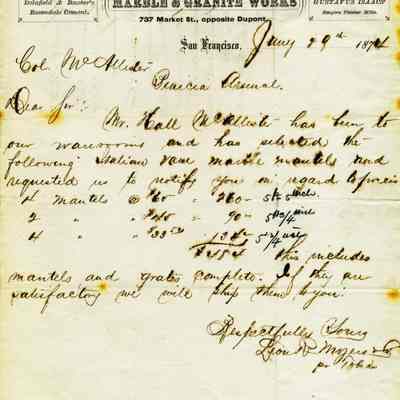 Delafield & Baxter's
Rosendale Cement.
MARBLE & GRANITE WORKS
GUSTAVUS ISAACS
737 Market St., opposite Dupont,
San Francisco, Jany 29th 1874
Col McAllister
Benecia Arsenal.
Dear Sir:
Mr. Hall McAllister has been to
our warerooms and has selected the
following Italian vase marble mantels and
requested us to notify you in regard to prices
4 mantels @ $60
2 " " $40 "
4 " " $33 50
$454 this includes
mantels and grates complete. If they are
satisfactory we will ship them to you.
Respectfully Yours
Leon R Myers & Co